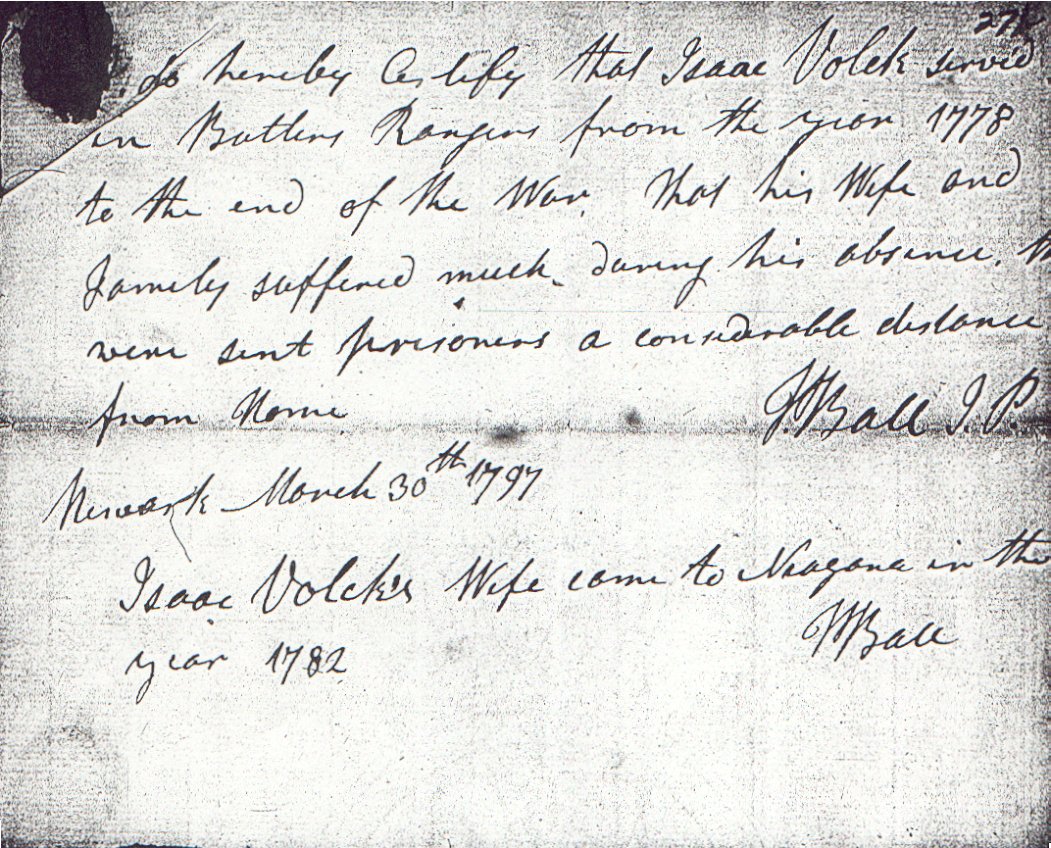 do hereby Certify that Isaac Volck served
in Butlers Rangers from the year 1778
to the end of the War. that his Wife and
Family suffered much during his absence. th
were sent prisoners a considerable distance
from Home
J. Ball J. P.
Newark March 30th 1797
Isaac Volck's Wife came to Niagara in the
year 1782
Ball